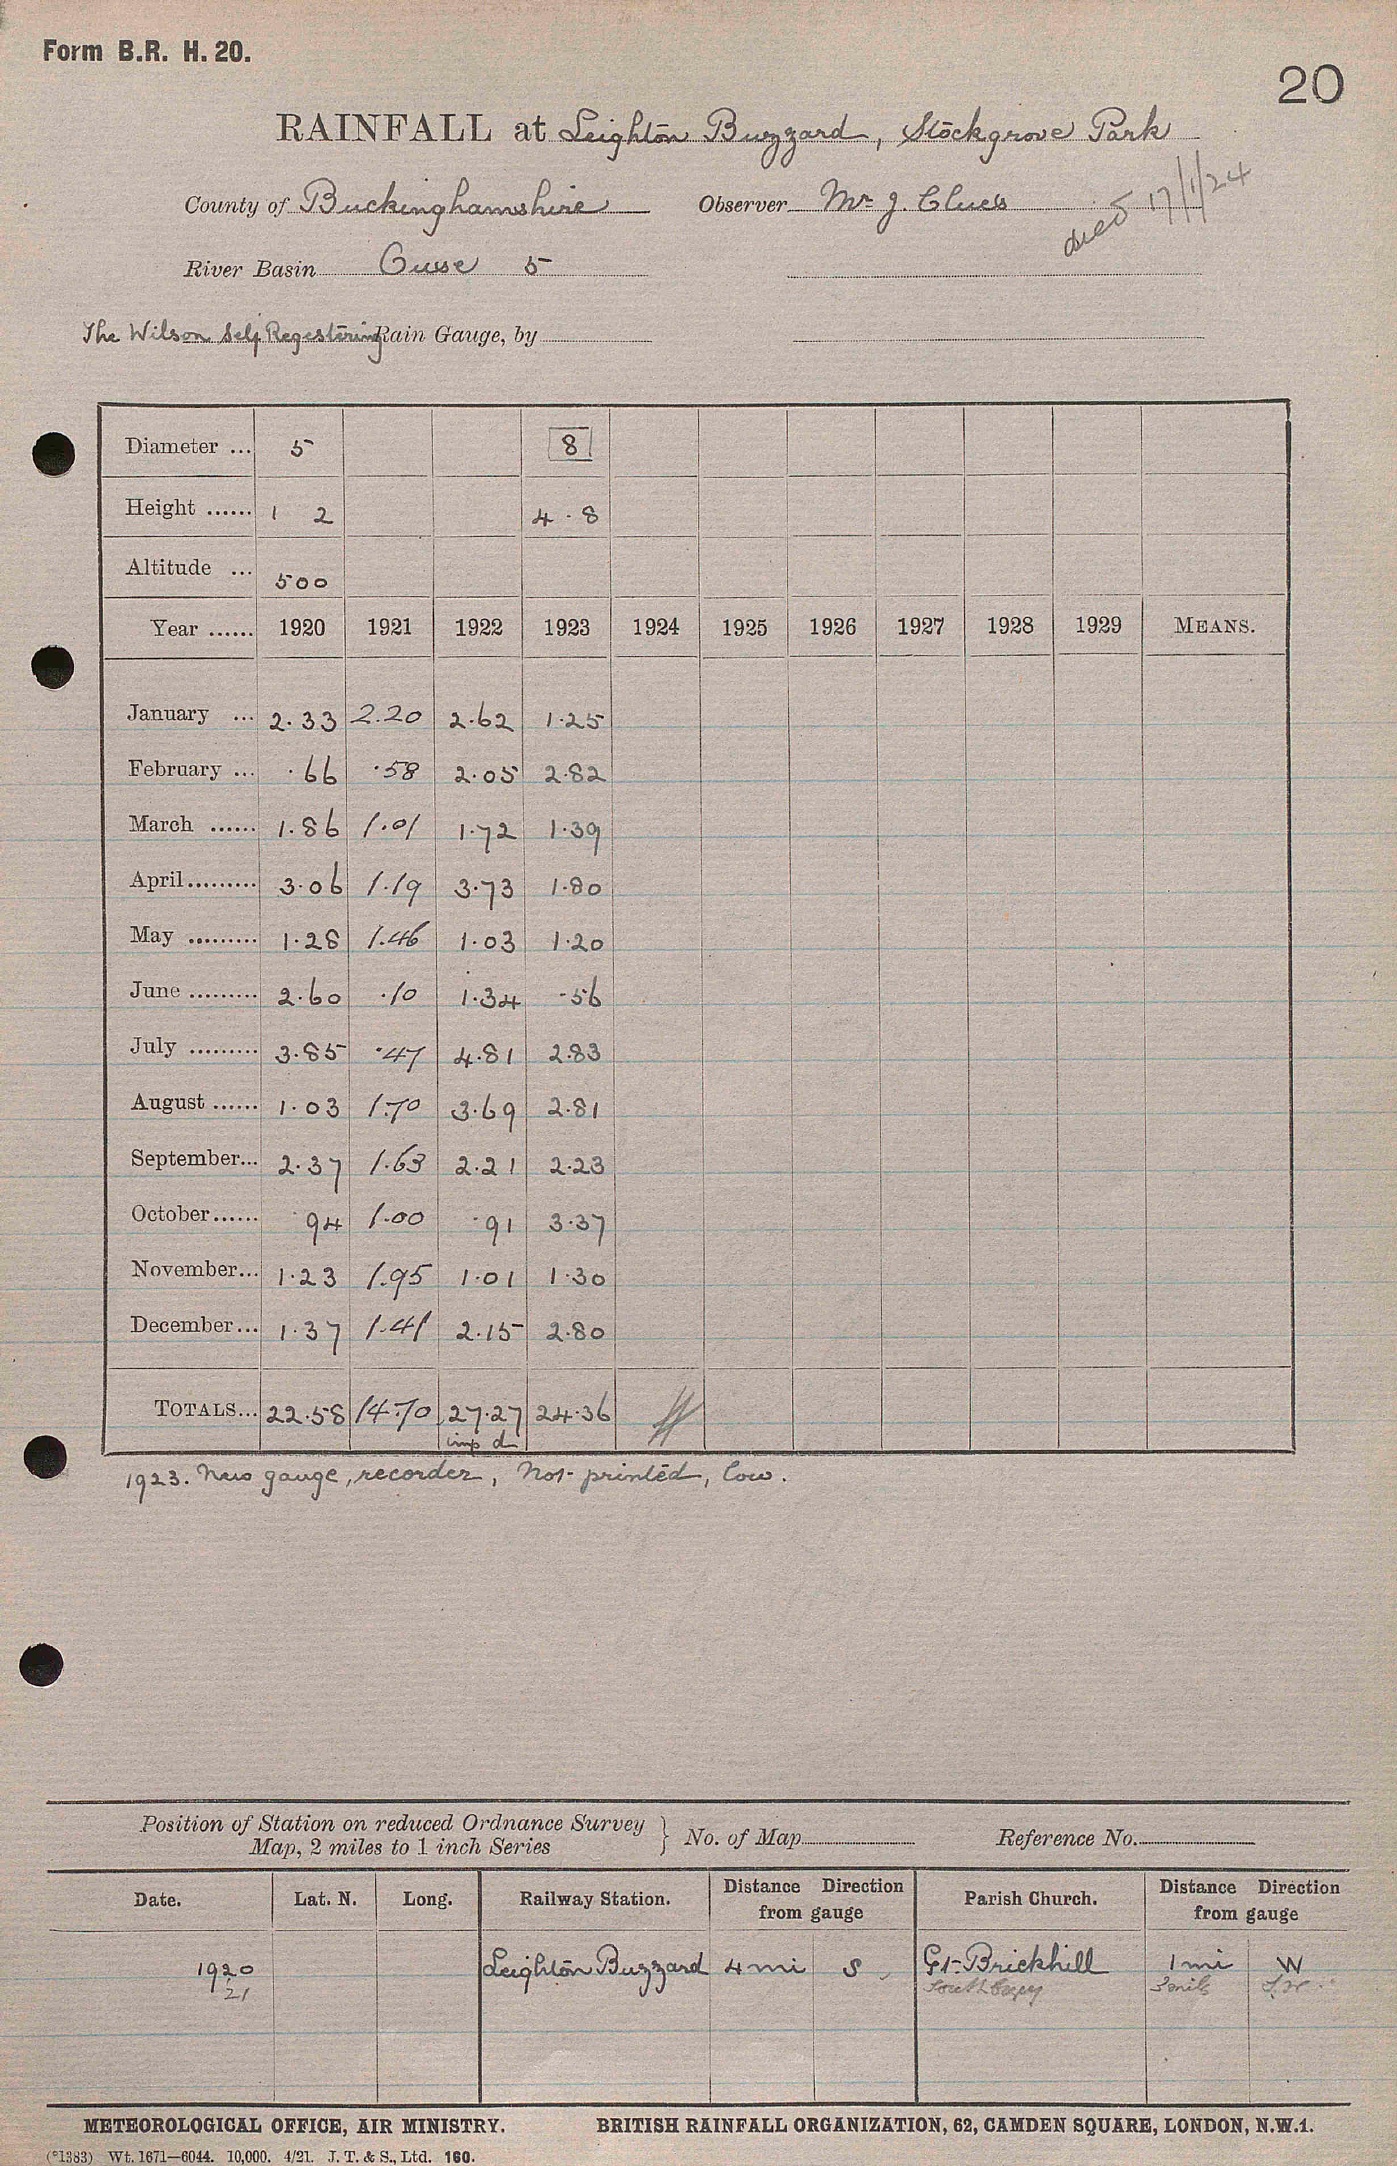 Form B.R. H. 20.
20
RAINFALL at Leighton Buzzard, Stockgrove Park
County of Buckinghamshire Observer Mr J. Clues
died 17/1/24
River Basin Ouse 5
The Wilson Self Regestering Rain Gauge, by
Diameter ... 5 8
Height ...... 1 2 4.8
Altitude ... 500
Year ...... 1920 1921 1922 1923 1924 1925 1926 1927 1928 1929 MEANS.
January ... 2.33 2.20 2.62 1.25
February ... .66 .58 2.05 2.82
March ...... 1.86 1.01 1.72 1.39
April ......... 3.06 1.19 3.73 1.80
May ......... 1.28 1.46 1.03 1.20
June ......... 2.60 .10 1.34 .56
July ......... 3.85 .47 4.81 2.83
August ...... 1.03 1.70 3.69 2.81
September... 2.37 1.63 2.21 2.23
October...... .94 1.00 .91 3.37
November... 1.23 1.95 1.01 1.30
December... 1.37 1.41 2.15 2.80
TOTALS... 22.58 14.70 27.27 24.36
imp d
1923. New gauge, recorder, Not printed, low.
Position of Station on reduced Ordnance Survey
Map, 2 miles to 1 inch Series } No. of Map Reference No.
Date. Lat. N. Long. Railway Station. Distance Direction from gauge Parish Church. Distance Direction from gauge
1920 Leighton Buzzard 4 mi S Gt Brickhill 1 mi W
21
METEOROLOGICAL OFFICE, AIR MINISTRY. BRITISH RAINFALL ORGANIZATION, 62, CAMDEN SQUARE, LONDON, N.W.1.
(*1383) Wt. 1671—6044. 10,000. 4/21. J. T. & S., Ltd. 160.